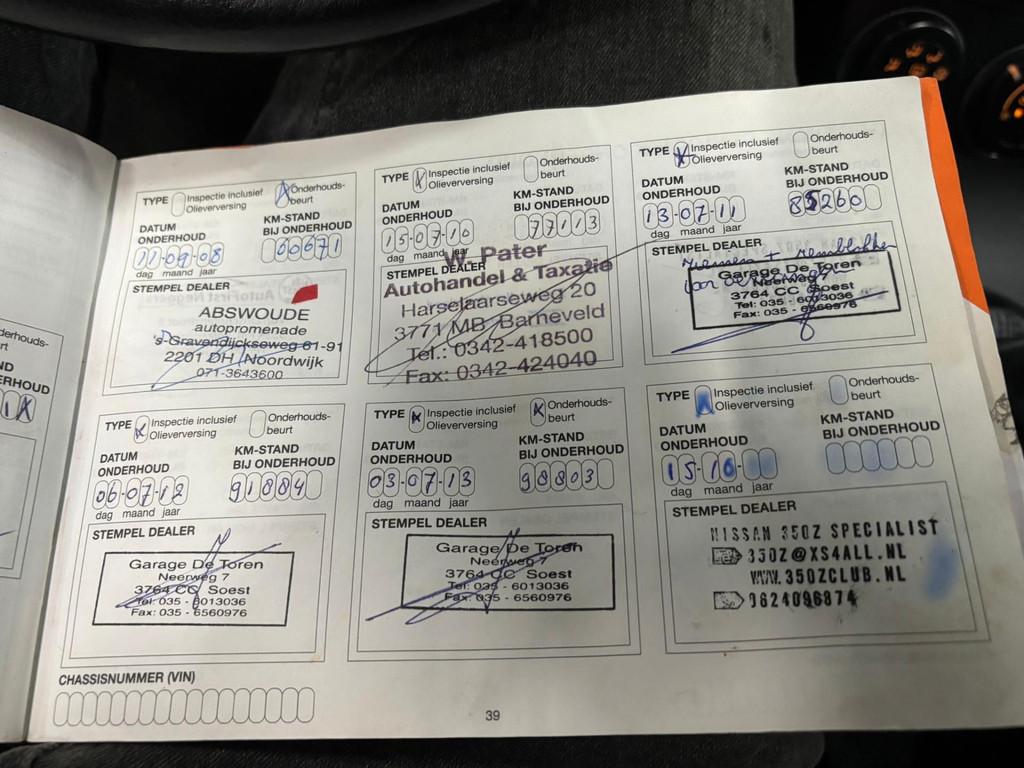 TYPE Inspectie inclusief Olieverversing Onderhouds-beurt
DATUM ONDERHOUD
KM-STAND BIJ ONDERHOUD
11-09-08
60671
dag maand jaar
STEMPEL DEALER
ABSWOUDE
autopromenade
's-Gravendijckseweg 61-91
2201 DH Noordwijk
071-3643600
TYPE Inspectie inclusief Olieverversing Onderhouds-beurt
DATUM ONDERHOUD
KM-STAND BIJ ONDERHOUD
15-07-10
77113
dag maand jaar
STEMPEL DEALER
W. Pater
Autohandel & Taxatie
Harselaarseweg 20
3771 MB Barneveld
Tel.: 0342-418500
Fax: 0342-424040
TYPE Inspectie inclusief Olieverversing Onderhouds-beurt
DATUM ONDERHOUD
KM-STAND BIJ ONDERHOUD
13-07-11
85260
dag maand jaar
STEMPEL DEALER
Riemen + remblokken
Garage De Toren
Neerweg 7
3764 CC Soest
Tel: 035 - 6013036
Fax: 035 - 6560976
TYPE Inspectie inclusief Olieverversing Onderhouds-beurt
DATUM ONDERHOUD
KM-STAND BIJ ONDERHOUD
06-07-12
91884
dag maand jaar
STEMPEL DEALER
Garage De Toren
Neerweg 7
3764 CC Soest
Tel: 035 - 6013036
Fax: 035 - 6560976
TYPE Inspectie inclusief Olieverversing Onderhouds-beurt
DATUM ONDERHOUD
KM-STAND BIJ ONDERHOUD
03-07-13
98803
dag maand jaar
STEMPEL DEALER
Garage De Toren
Neerweg 7
3764 CC Soest
Tel: 035 - 6013036
Fax: 035 - 6560976
TYPE Inspectie inclusief Olieverversing Onderhouds-beurt
DATUM ONDERHOUD
KM-STAND BIJ ONDERHOUD
15-10-
dag maand jaar
STEMPEL DEALER
NISSAN 350Z SPECIALIST
350Z@XS4ALL.NL
WWW.350ZCLUB.NL
0624096874
CHASSISNUMMER (VIN)
39